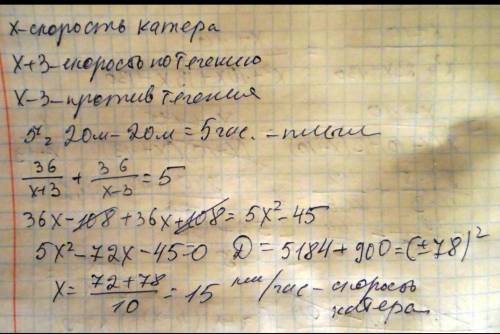 x-скорость катера
x+3-скорость по течению
x-3-против течения
5ч 20м-20м=5час. -плыл
36/(x+3) + 36/(x-3) = 5
36x-108+36x+108=5x²-45
5x²-72x-45=0 D=5184+900=(±78)²
x= (72+78)/10 = 15 км/час-скорость
катера